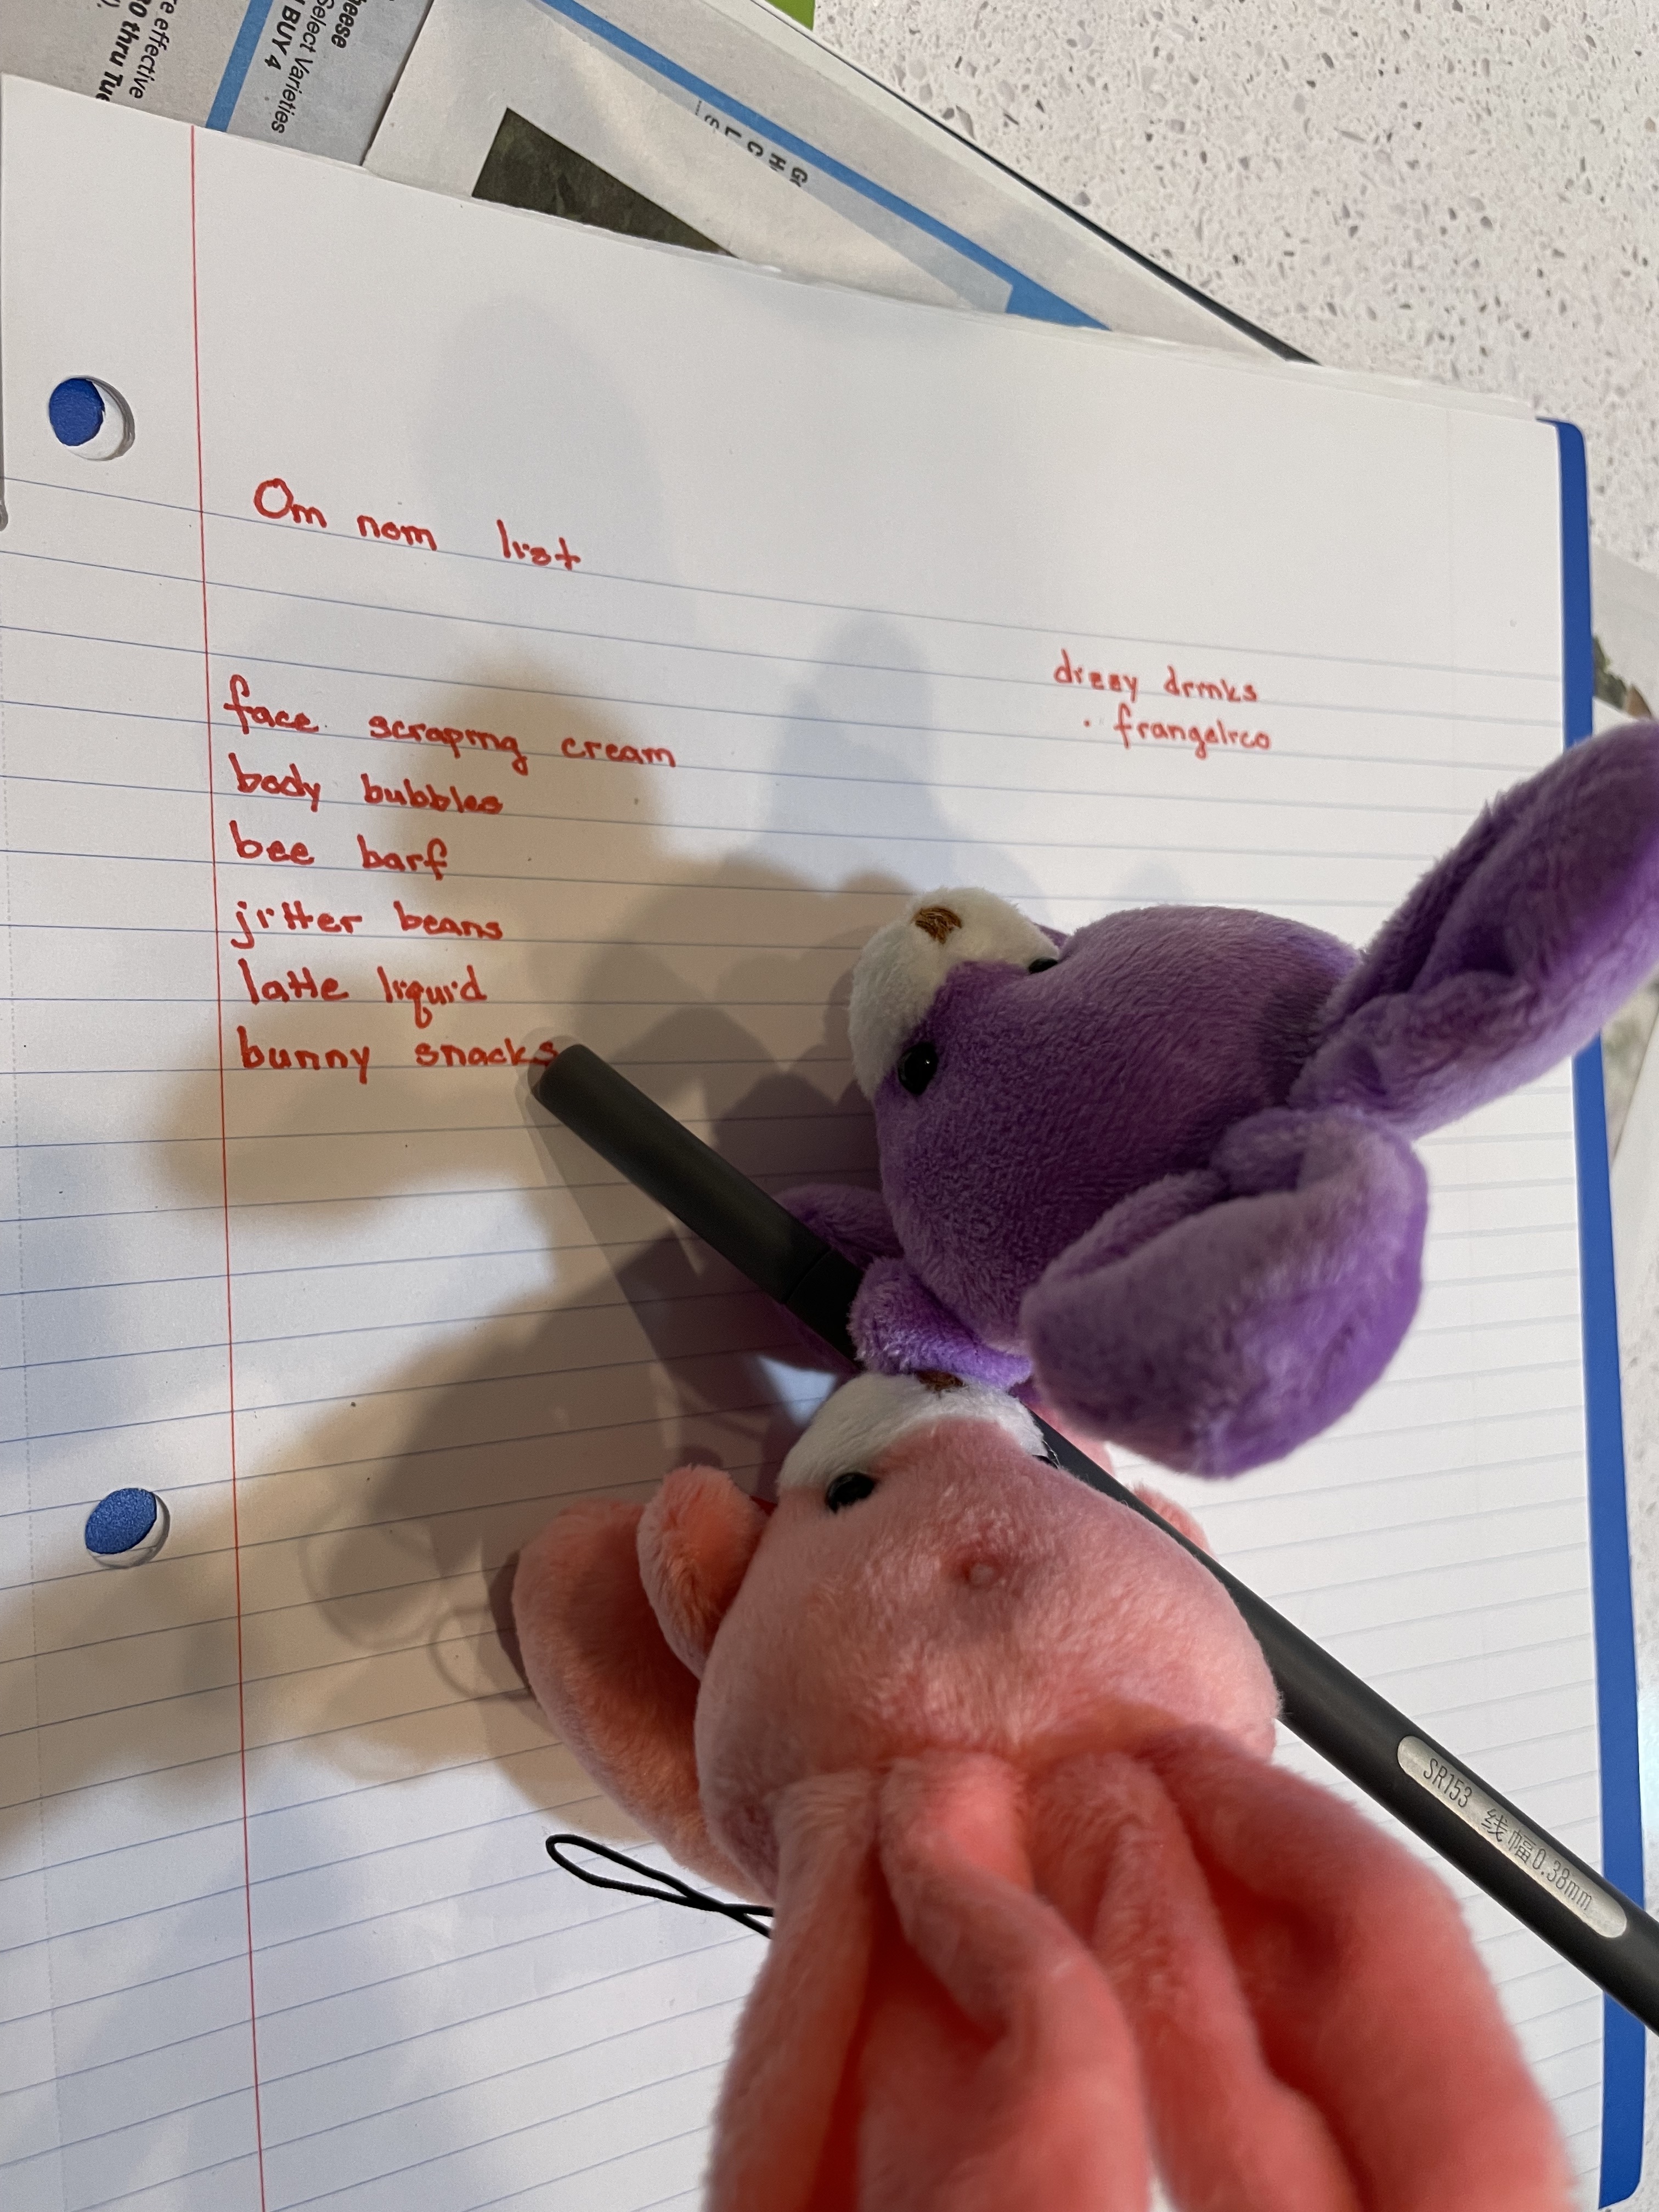 heese
Select Varieties
BUY 4
effective
thru Tue
Om nom list
face scraping cream
body bubbles
bee barf
jitter beans
latte liquid
bunny snacks
dizzy drinks
· frangelico
SR153 线幅0.38mm